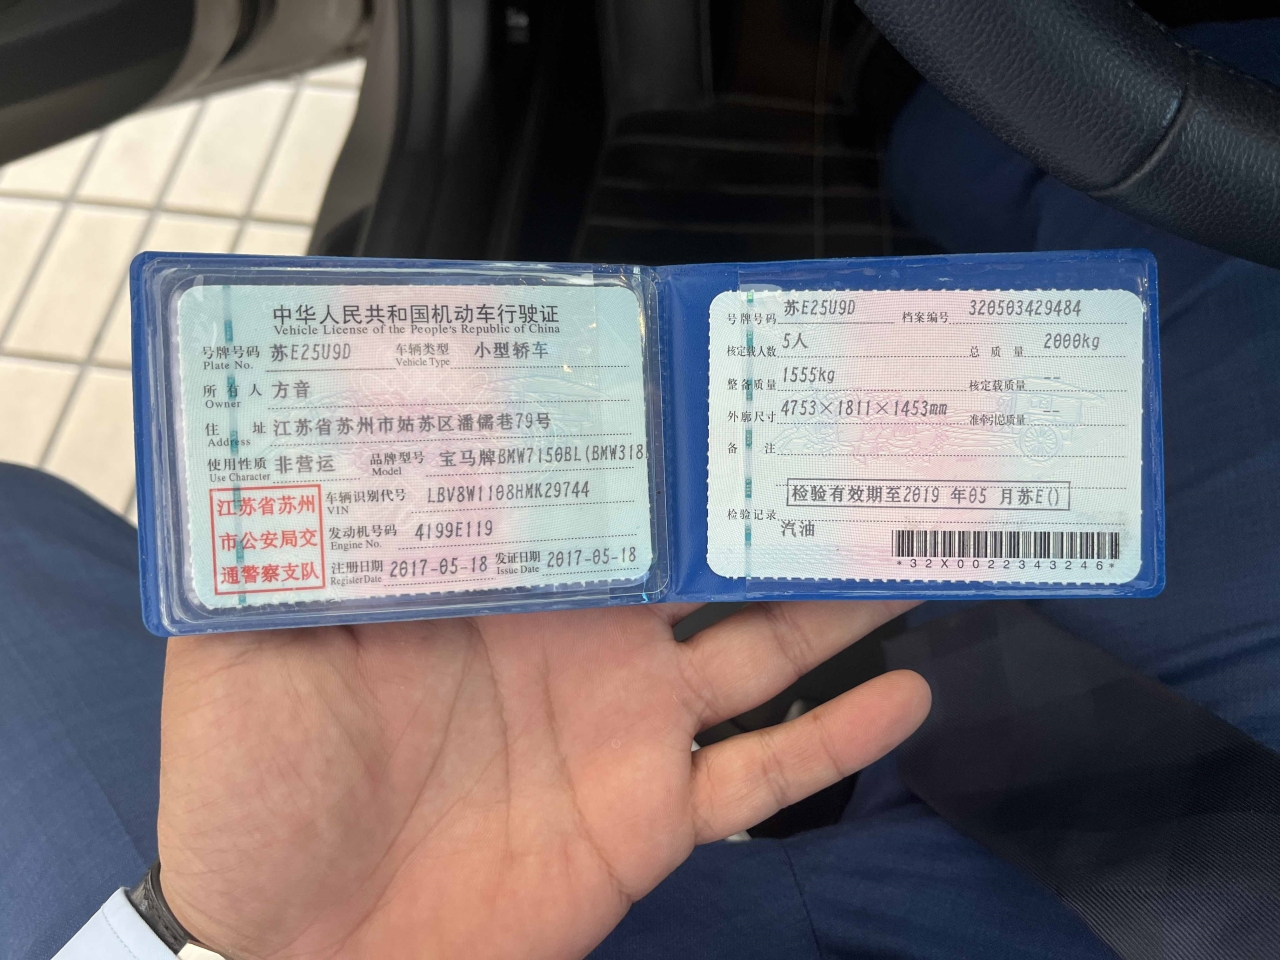 中华人民共和国机动车行驶证
Vehicle License of the People's Republic of China
号牌号码 苏E25U9D 车辆类型 小型轿车
Plate No. Vehicle Type
所有人 方音
Owner
住址 江苏省苏州市姑苏区潘儒巷79号
Address
使用性质 非营运 品牌型号 宝马牌BMW7150BL(BMW318
Use Character Model
江苏省苏州
市公安局交
通警察支队
车辆识别代号 LBV8W1108HMK29744
VIN
发动机号码 4199E119
Engine No.
注册日期 2017-05-18 发证日期 2017-05-18
Register Date Issue Date
号牌号码 苏E25U9D 档案编号 320503429484
核定载人数 5人 总质量 2000kg
整备质量 1555kg 核定载质量 --
外廓尺寸 4753×1811×1453mm 准牵引总质量 --
备注
检验有效期至2019 年05 月苏E()
检验记录
汽油
*32X0022343246*